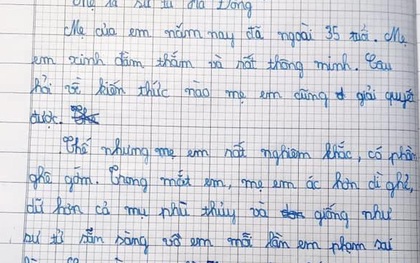 Mẹ là sư tử Hà Đông
Mẹ của em năm nay đã ngoài 35 tuổi. Mẹ
em xinh đằm thắm và rất thông minh. Câu
hỏi về kiến thức nào mẹ em cũng giải quyết
được.
Thế nhưng mẹ em rất nghiêm khắc, có phần
ghê gớm. Trong mắt em, mẹ em ác hơn dì ghẻ,
dữ hơn cả mụ phù thủy và giống như
sư tử sẵn sàng vồ em mỗi lần em phạm sai